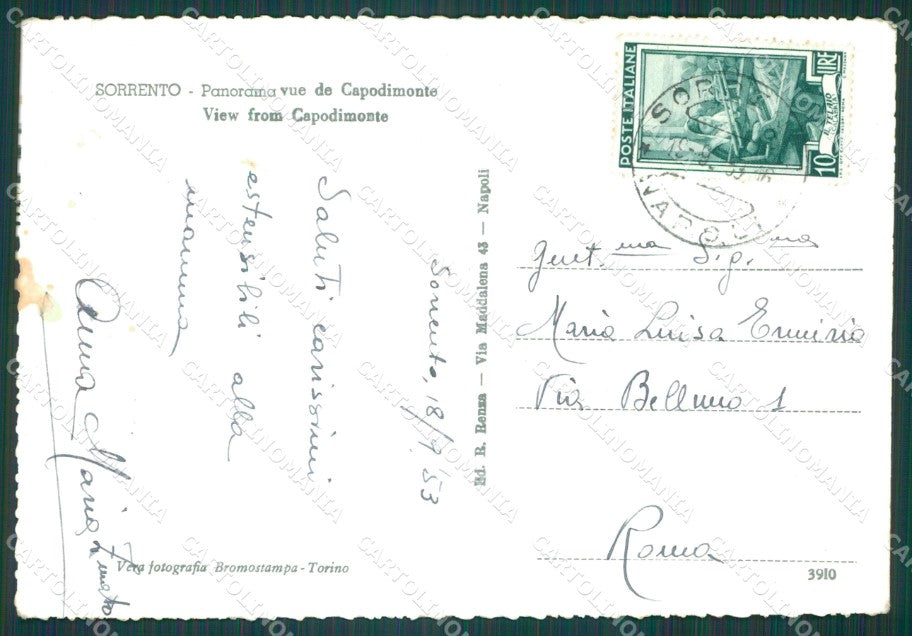 SORRENTO - Panorama vue de Capodimonte
View from Capodimonte
POSTE ITALIANE
LIRE
10
SORRENTO
NAPOLI
Sorrento, 18/9 53
Saluti carissimi
estensibili alla
mamma
Anna Maria
Ed. R. Renza — Via Maddalena 43 — Napoli
Gent.ma Sig.na
Maria Luisa
Via Belluno 1
Roma
Vera fotografia Bromostampa - Torino
3910
CARTOLINOMANIA